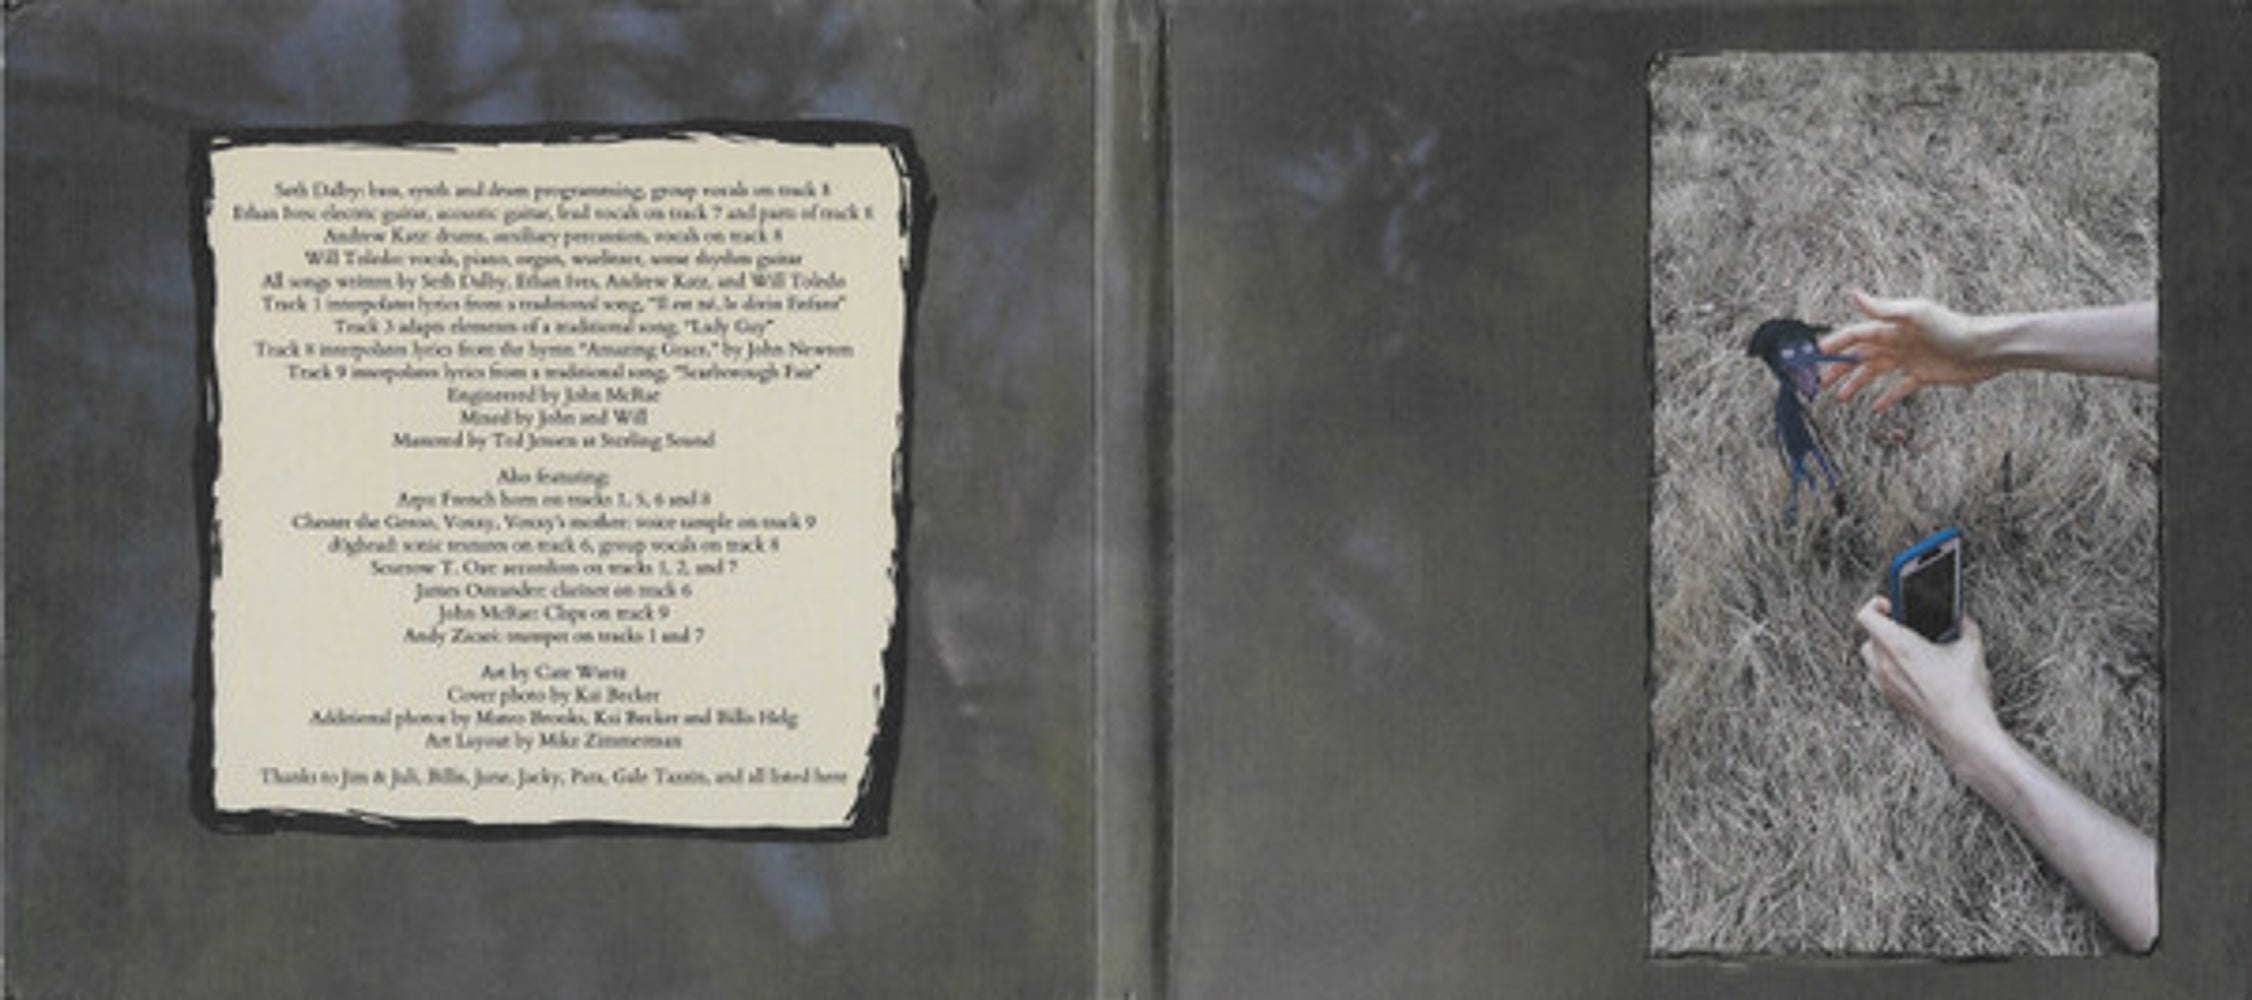 Seth Dalby: bass, synth and drum programming, group vocals on track 8
Ethan Ives: electric guitar, acoustic guitar, lead vocals on track 7 and parts of track 8
Andrew Katz: drums, auxiliary percussion, vocals on track 8
Will Toledo: vocals, piano, organ, wurlitzer, some rhythm guitar
All songs written by Seth Dalby, Ethan Ives, Andrew Katz, and Will Toledo
Track 1 interpolates lyrics from a traditional song, "Il est né, le divin Enfant"
Track 3 adapts elements of a traditional song, "Lady Gay"
Track 8 interpolates lyrics from the hymn "Amazing Grace," by John Newton
Track 9 interpolates lyrics from a traditional song, "Scarborough Fair"
Engineered by John McRae
Mixed by John and Will
Mastered by Ted Jensen at Sterling Sound
Also featuring:
French horn on tracks 1, 5, 6 and 8
Chester the Voxxy, Voxxy's mother: voice sample on track 9
sonic textures on track 6, group vocals on track 8
T. accordion on tracks 1, 2, and 7
James Ostrander: clarinet on track 6
John McRae: Claps on track 9
Andy trumpet on tracks 1 and 7
Art by Cate Wurtz
Cover photo by Kai Becker
Additional photos by Mateo Brooks, Kai Becker and Billis Helg
Art Layout by Mike Zimmerman
Thanks to Jim & Juli, Billis, June, Jacky, and all listed here